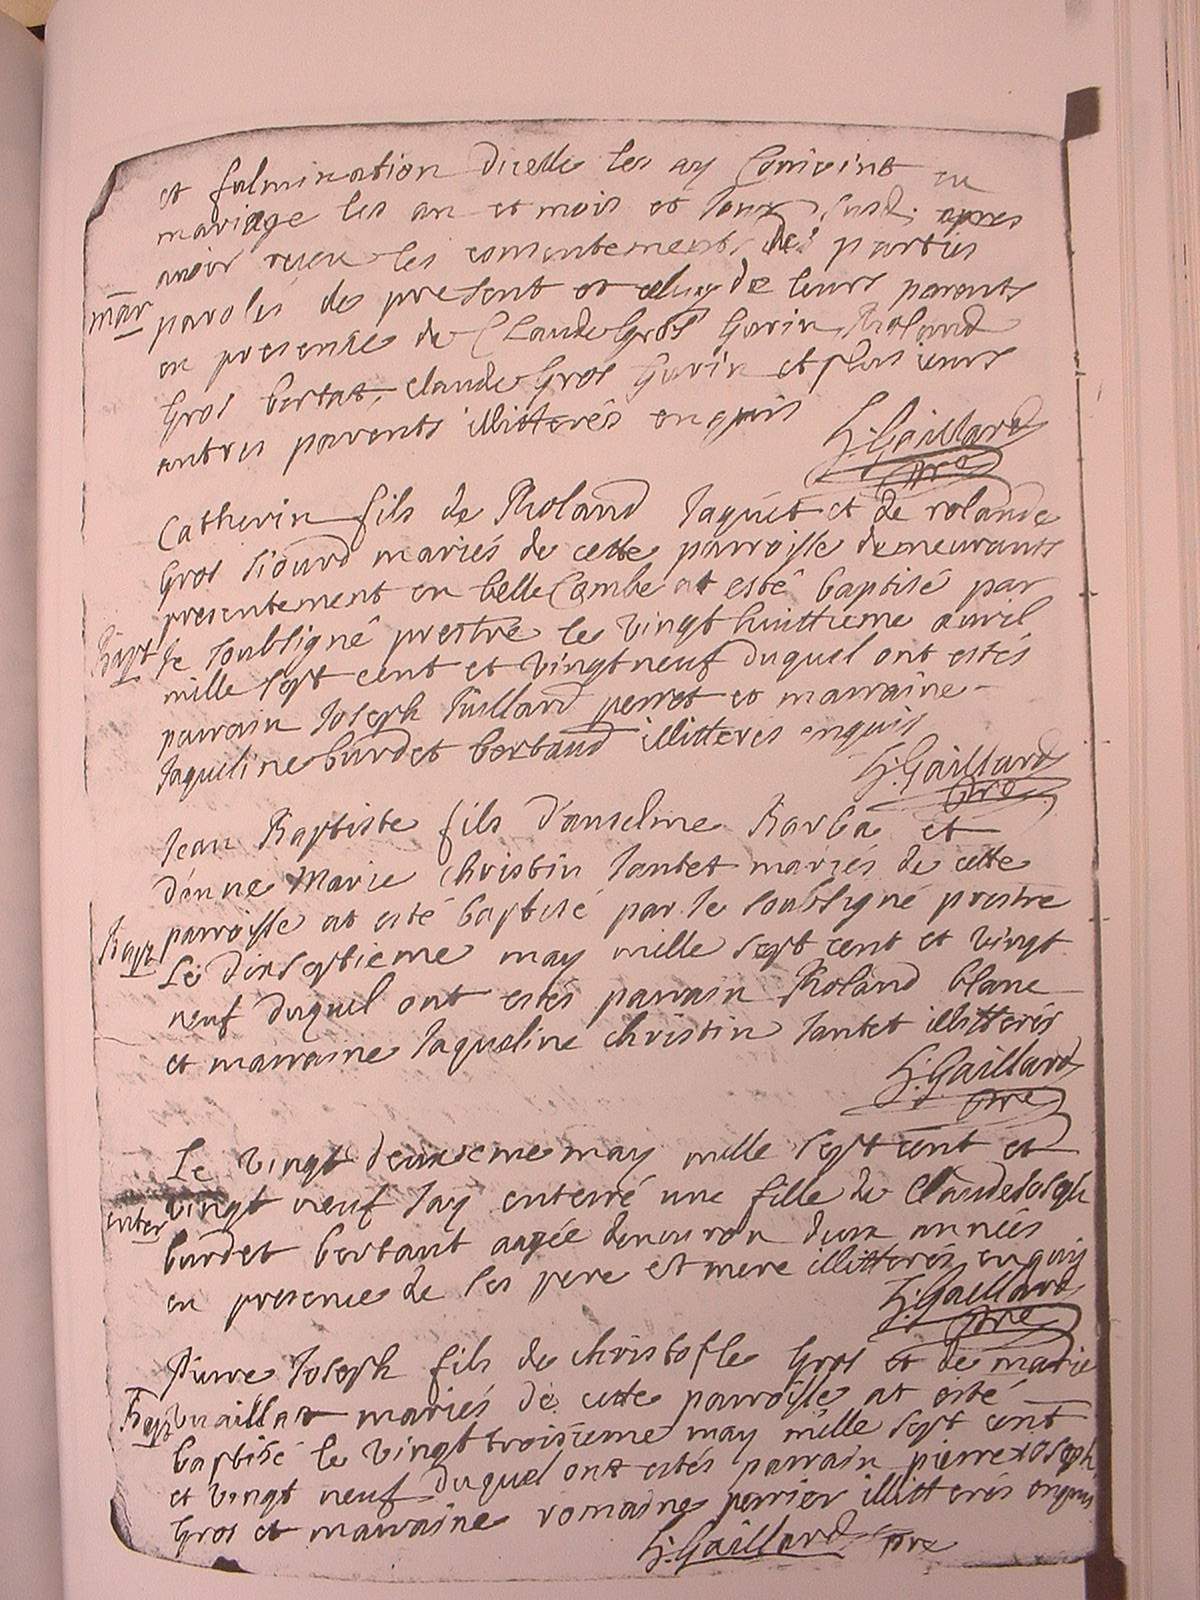 et fulmination dicelle les ay Conioint en
mariage les an et mois et Jour susd. apres
avoir receu les consentements des parties
mar
paroles de present et celuy de leurs parents
en presence de Claude Gros Gorin Roland
Gros bertat, claude Gros Gorin et plusieurs
autres parents illitterés enquis
h: Gaillard
pre
Catherin fils de Roland Jaquet et de rolande
Gros Siourd mariés de cette parroisse demeurants
presentement en belle Combe at esté baptisé par
Bapt
Je soubsigné prestre le vingt huittieme avril
mille sept cent et vingt neuf duquel ont estés
parrain Joseph Juillard perret et marraine
Jaqueline burdet bertaud illitteres enquis
h: Gaillard
pre
Jean Baptiste fils d'anselme Barba et
d'enne Marie christin Jantet mariés de cette
parroisse at esté baptisé par le soubsigné prestre
Bapt
Le dixseptieme may mille sept cent et vingt
neuf duquel ont estés parrain Roland blanc
et marraine Jaqueline christin Jantet illitterés
h: Gaillard
pre
Le vingt deuxieme may mille sept cent et
vingt neuf Jay enterré une fille de Claude Joseph
enter
burdet bertaut aagée denuiron deux années
en presence de ses pere et mere illitteres enquis
h: Gaillard
pre
Pierre Joseph fils de christofle Gros et de marie
Bapt
vuaillat mariés de cette parroisse at esté
baptisé le vingt troisieme may mille sept cent
et vingt neuf duquel ont estés parrain pierre Joseph
Gros et marraine romaine perrier illitterés enquis
h: Gaillard pre